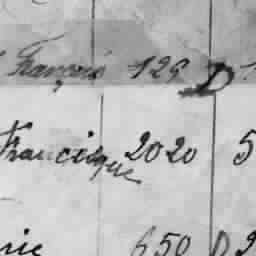 François 125 D
Francisque 2020 5
nie 650 D 2